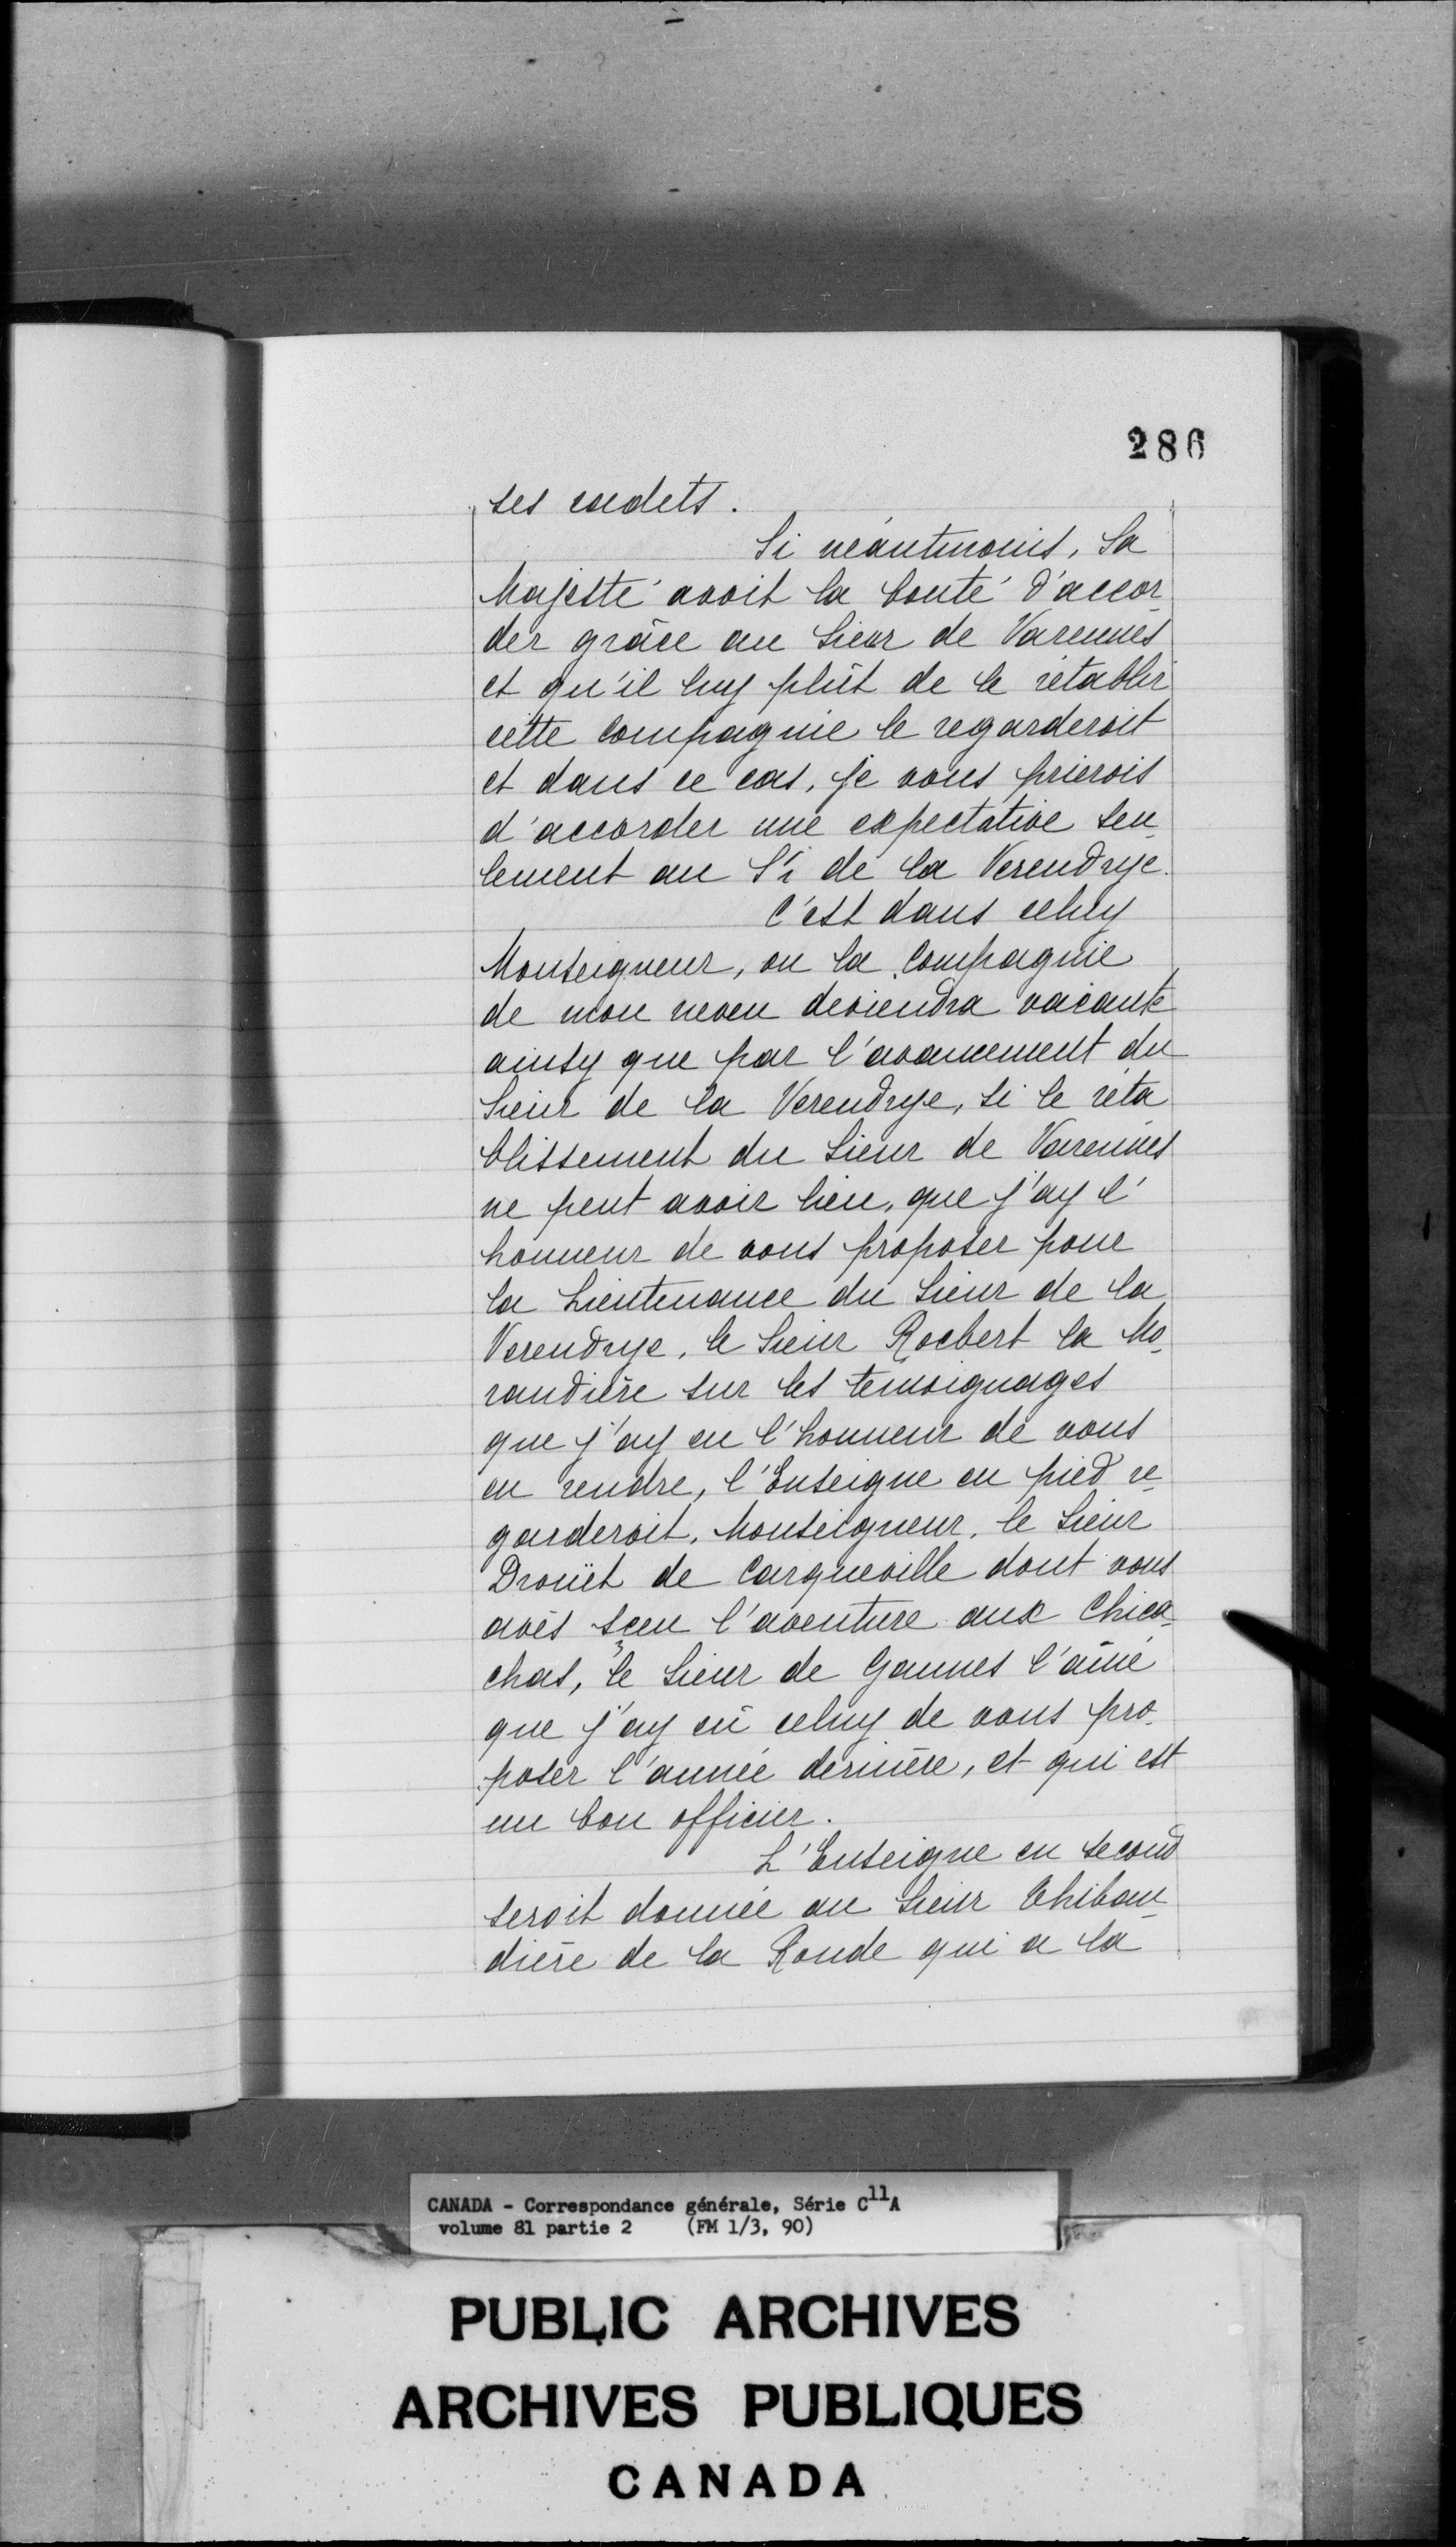 286
ses cadets.
Si néantmoins, Sa
Majesté avoit la bonté d'accor-
der grâce au Sieur de Varennes
et qu'il luy plût de le rétablir
cette Compagnie le regarderoit
et dans ce cas, je vous prierois
d'accorder une expectative seu-
lement au Sr de la Verendrye.
C'est dans celuy
Monseigneur, ou la Compagnie
de mon neveu deviendra vacante
ainsy que par l'avancement du
Sieur de la Verendrye, si le réta
blissement du Sieur de Varennes
ne peut avoir lieu, que j'ay l'
honneur de vous proposer pour
la Lieutenance du Sieur de la
Verendrye, le Sieur Rocbert la Mo-
randière sur les temoignages
que j'ay eu l'honneur de vous
en rendre, l'Enseigne en pied re-
garderoit, Monseigneur, le Sieur
Drouët de Carqueville dont vous
avés sceu l'aventure aux Chica-
chas, le Sieur de Gannes l'aîné
que j'ay eû celuy de vous pro-
poser l'année dernière, et qui est
un bon officier.
L'Enseigne en second
seroit donnée au Sieur Thibau-
dière de la Ronde qui a la
CANADA - Correspondance générale, Série C11A
volume 81 partie 2 (FM 1/3, 90)
PUBLIC ARCHIVES
ARCHIVES PUBLIQUES
CANADA